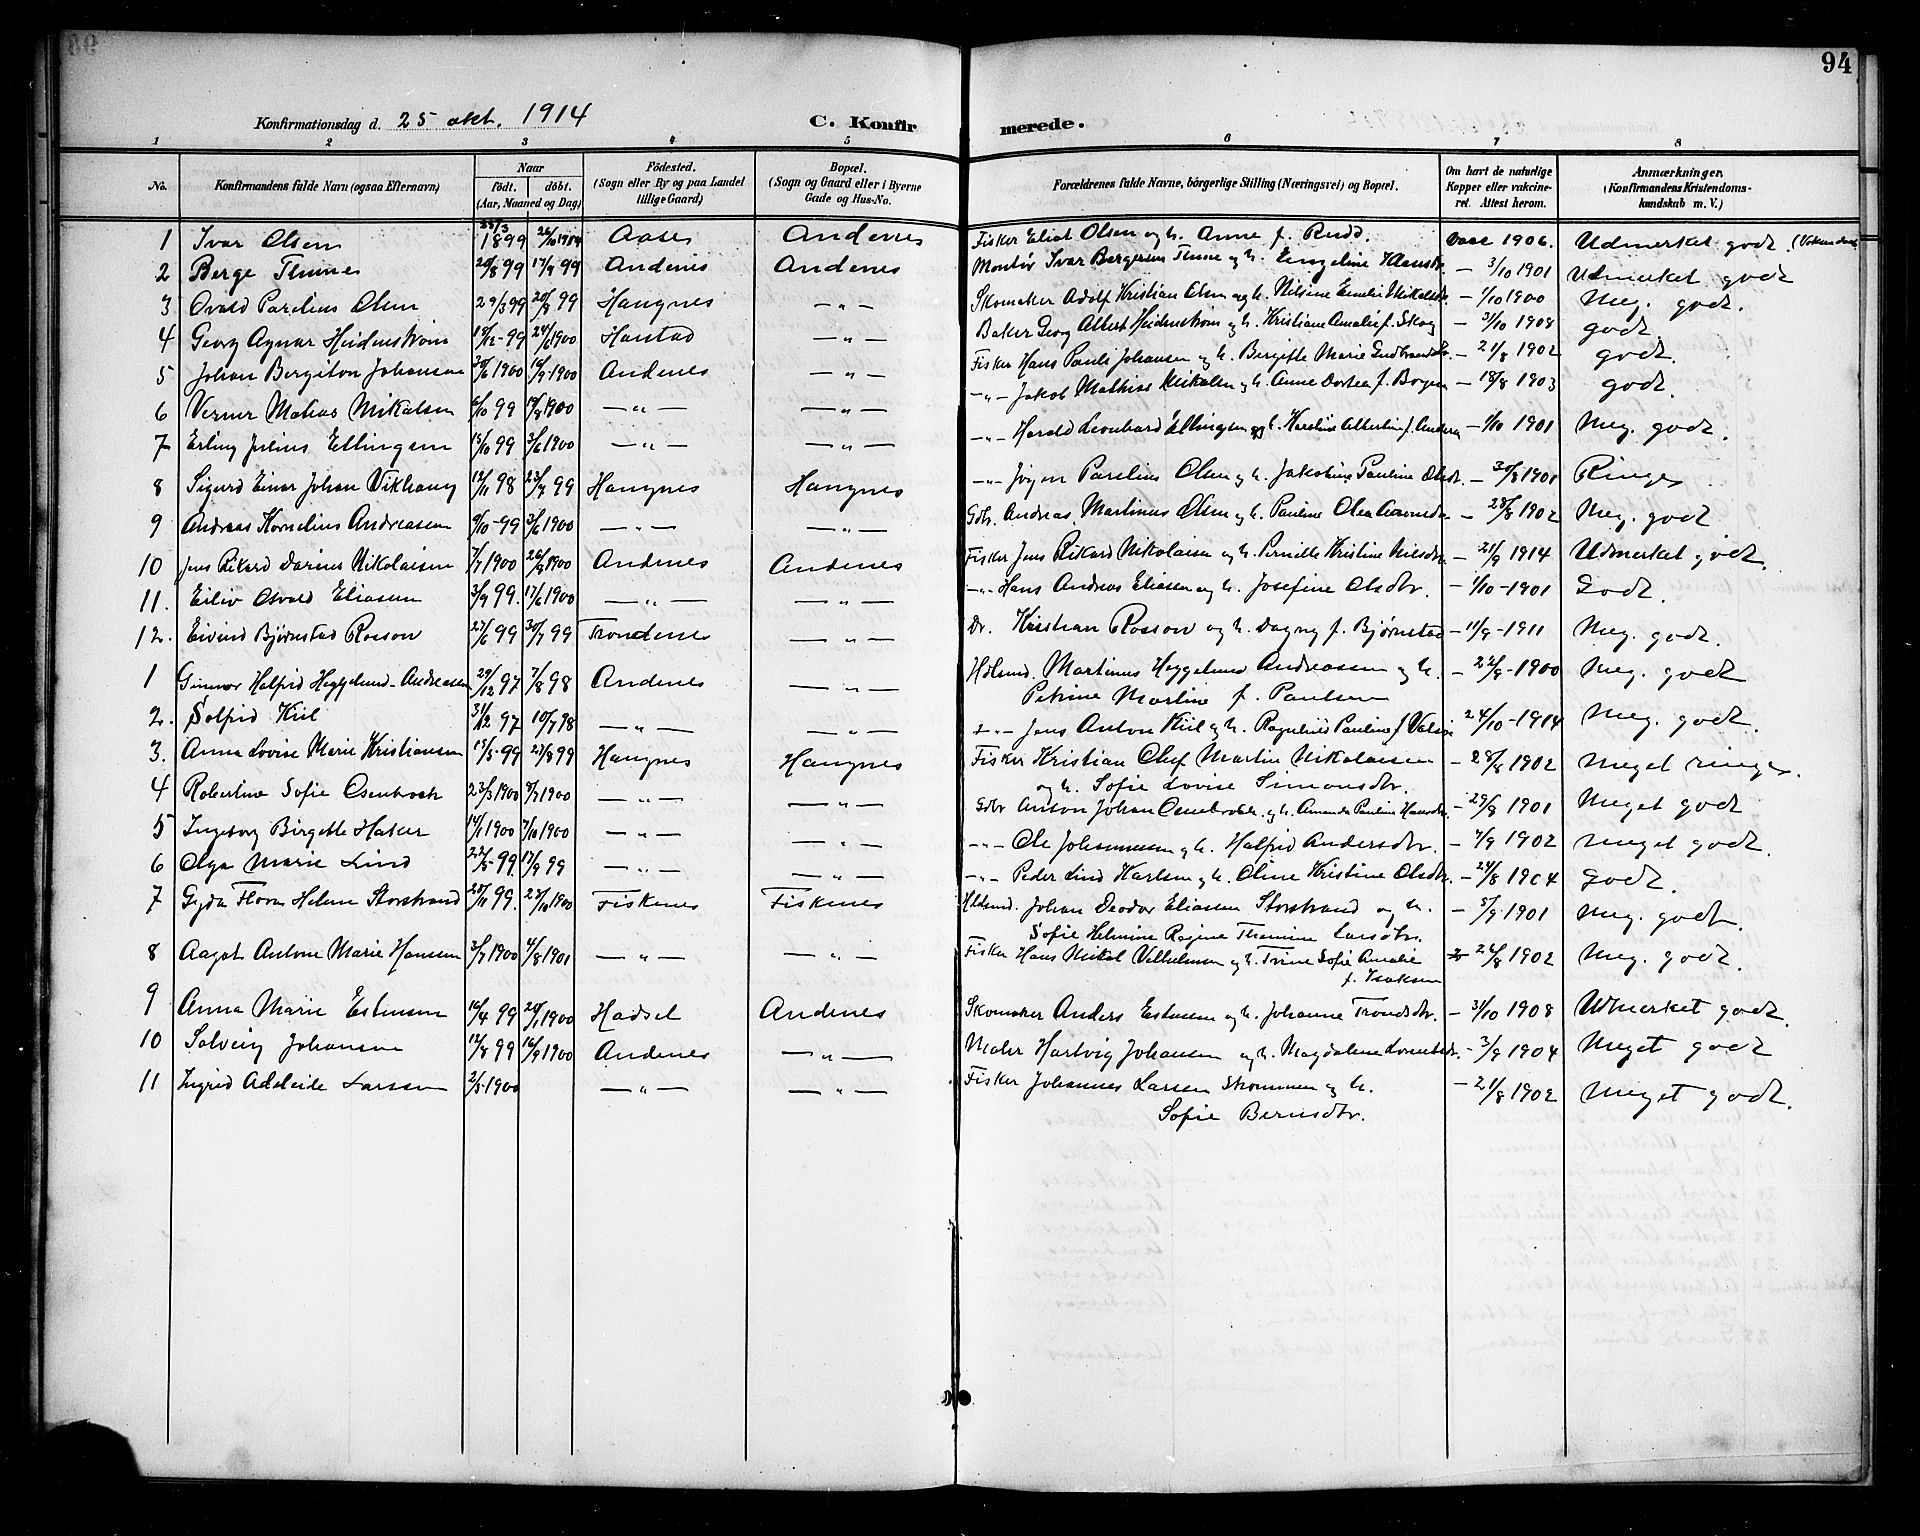 94
Konfirmationsdag d. 25 okt. 1914 C. Konfirmerede.
1 2 3 4 5 6 7 8
No. Konfirmandens fulde Navn (ogsaa Efternavn) Naar födt. döbt. (Aar, Maaned og Dag) Födested. (Sogn eller By og paa Landet tillige Gaard) Bopæl. (Sogn og Gaard eller i Byerne Gade og Hus-No. Forældrenes fulde Navne, börgerlige Stilling (Næringsvei) og Bopæl. Om havt de naturlige Kopper eller vakcineret. Attest herom. Anmærkninger, (Konfirmandens Kristendomskundskab m. V.)
1 Ivar Olsen 1899 Aases Andenes Fisker Eliot Olsen og h. Anne f. Rudd. vacc 1906. Udmerket godt
2 Berge Thune 20/8 99 17/9 99 Andenes Andenes Montør Ivar Bergersen Thune og h. Engeline — 3/10 1901 Udmerket godt
3 Osvald Parelius Olsen 29/3 99 20/8 99 Haugnes — " — Skomaker Adolf Kristian Olsen og h. Nilsine Emilie Mikalsdr. — 1/10 1900 Meg. godt.
4 Georg Agnar Heidenstrøm 18/12-99 24/6 1900 Harstad — " — Baker Georg Albert Heidenstrøm og h. Kristiane Amalie f. Skog — 31/10 1908 godt
5 Johan Bergiton Johansen 30/6 1900 16/9-1900 Andenes — " — Fisker Hans Pauli Johansen og h. Bergitte Marie — 21/8 1902 godt.
6 Verner Matias Mikalsen 6/10 99 19/8 1900 — " — — " — — " — Jakob Mathias Mikalsen og h. Anne Dortea f. Borgen — 18/8 1903 godt.
7 Erling Julius Ellingsen 13/10 99 3/6 1900 — " — — " — — " — Harald Leonhard Ellingsen og h. Karoline Albertine f. — 1/10 1901 Meg. godt.
8 Sigurd Einar Johan Vikhaug 12/11 98 23/7 99 Haugnes Haugnes — " — Jørgen Parelius Olsen og h. Jakobine Pauline Olsdr. — 30/8 1901 Ringe
9 Andreas Kornelius Andreasen 9/10-99 3/6 1900 — " — — " — Gdbr. Andreas Martinus Olsen og h. Pauline Olea — 28/8 1902 Meg. godt
10 Jens Rikard Darius Nikolaisen 7/7 1900 26/8 1900 Andenes Andenes Fisker Jens Rikard Nikolaisen og h. Pernille Kristine Nilsdr. — 21/9 1914 Udmerket godt.
11. Eiliv Osvald Eliasen 3/9 99. 17/6 1900 — " — — " — — " — Hans Andreas Eliasen og h. Josefine Olsdtr. — 1/10-1901 Godt.
12. Eivind Bjørnstad Rosson 27/6 99 30/7 99 Trondenes — " — Dr. Kristian Rosson og h. Dagny f. Bjørnstad — 11/9-1911 Meg. godt.
1 Gunvor Halfrid Heggelund-Andreasen 29/12 97 7/8 98 Andenes — " — Hdlsmd. Martinus Heggelund Andreassen og h. — 22/9-1900 Meg. godt
Petrine Martine f. Paulsen
2. Solfrid Kiil 31/12 97 10/7 98 — " — — " — — " — Jens Anton Kiil og h. Ragnhild Pauline f. 24/10-1914 Meg. godt.
3. Anna Lovise Marie Kristiansen 15/5-99 27/8 99 Haugnes Haugnes Fisker Kristian Olaf Martin Nikolaisen — 28/8 1902 Meget ringe.
og h. Sofie Lovise Simonsdtr.
4 Robertine Sofie Osenbroch 23/3 1900 8/7 1900 — " — — " — Gdbr Anton Johan Osenbroch. og h. Amanda Pauline Hansdtr — 29/8 1901 Meget godt
5 Ingeborg Birgitte Haker 14/1 1900 7/10 1900 — " — — " — — " — Ole Johannessen og h. Halfrid Andersdtr. — 7/9 1902 Meget godt.
6 Olga Marie Lind 22/5-99. 17/9 99 — " — — " — — " — Peder Lind Karlsen og h. Oline Kristine Olsdtr. — 24/8 1904 Godt.
7 Gyda Flora Helene Storstrand 20/11 99. 23/10 1900 Fiskenes Fiskenes Hdlsmd. Johan Deodor Eliasen Storstrand og h. — 5/9 1901 Meg. godt.
Sofie Helmine Regine Thomine Larsdtr.
8 Aagot Antone Marie Hansen 3/7 1900 4/8 1901 — " — — " — Fisker Hans Nikal Vilhelmsen og h. Trine Sofie Amalie 26/8 1902 Meg. godt.
f. Isaksen
9 Anna Marie Estensen 16/4 99 28/1 1900 Hadsel Andenes Skomaker Anders Estensen og h. Johanne Trondsdtr. — 31/10 1908 Udmerket godt.
10 Solveig Johansen 12/8 99 16/9 1900 Andenes — " — Maler Hartvig Johansen og h. Magdalene — 3/9 1904 Meget godt
11 Ingrid Adeleide Larsen 2/5-1900 — " — — " — Fisker Johannes Larsen Strømmen og h. — 21/8 1902 Meget godt.
Sofie Berntsdtr.